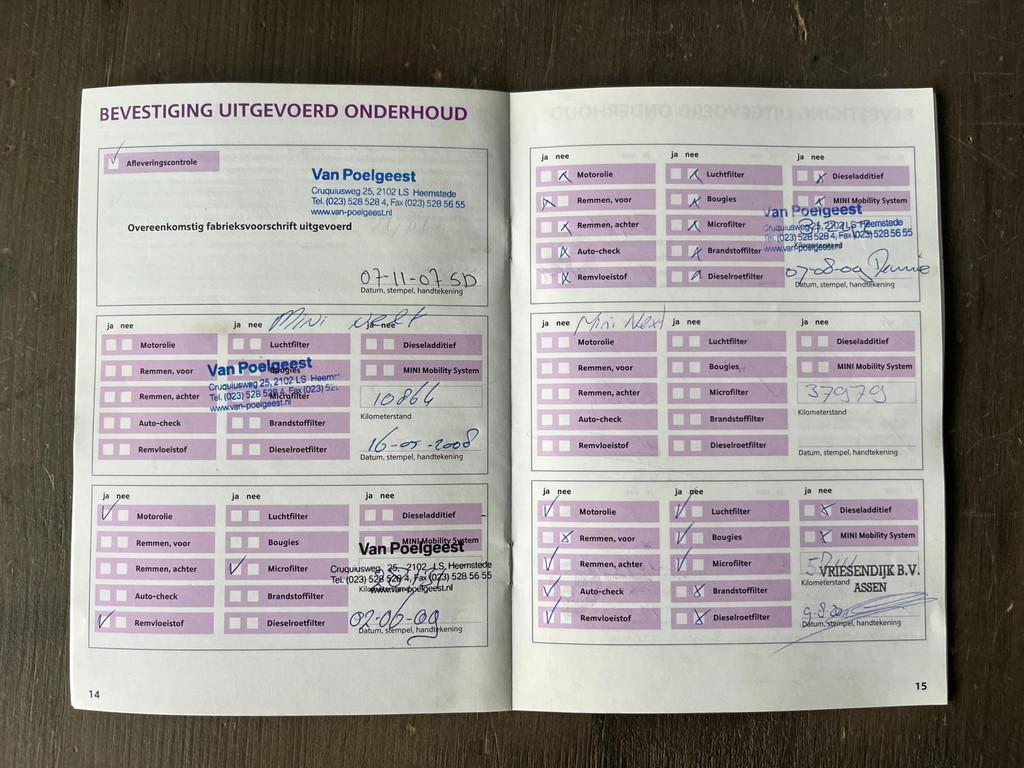 BEVESTIGING UITGEVOERD ONDERHOUD
Afleveringscontrole
Van Poelgeest
Cruquiusweg 25, 2102 LS Heemstede
Tel. (023) 528 528 4, Fax (023) 528 56 55
www.van-poelgeest.nl
Overeenkomstig fabrieksvoorschrift uitgevoerd
07-11-07 SD
Datum, stempel, handtekening
ja nee
ja nee
Mini Next
ja nee
Motorolie
Luchtfilter
Dieseladditief
Remmen, voor
Bougies
MINI Mobility System
Van Poelgeest
Cruquiusweg 25, 2102 LS Heem
Tel. (023) 528 528 4, Fax (023) 52
www.van-poelgeest.nl
Remmen, achter
Microfilter
10864
Kilometerstand
Auto-check
Brandstoffilter
16-05-2008
Remvloeistof
Dieselroetfilter
Datum, stempel, handtekening
ja nee
ja nee
ja nee
Motorolie
Luchtfilter
Dieseladditief
Remmen, voor
Bougies
MINI Mobility System
Van Poelgeest
Cruquiusweg 25, 2102 LS Heemstede
Tel. (023) 528 528 4, Fax (023) 528 56 55
www.van-poelgeest.nl
Remmen, achter
Microfilter
Auto-check
Brandstoffilter
02-06-09
Remvloeistof
Dieselroetfilter
Datum, stempel, handtekening
14
ja nee
ja nee
ja nee
Motorolie
Luchtfilter
Dieseladditief
Remmen, voor
Bougies
MINI Mobility System
Van Poelgeest
Cruquiusweg 25, 2102 LS Heemstede
Tel. (023) 528 528 4, Fax (023) 528 56 55
www.van-poelgeest.nl
Remmen, achter
Microfilter
Kilometerstand
Auto-check
Brandstoffilter
07-08-09
Remvloeistof
Dieselroetfilter
Datum, stempel, handtekening
ja nee
Mini Next
ja nee
ja nee
Motorolie
Luchtfilter
Dieseladditief
Remmen, voor
Bougies
MINI Mobility System
Remmen, achter
Microfilter
37979
Kilometerstand
Auto-check
Brandstoffilter
Remvloeistof
Dieselroetfilter
Datum, stempel, handtekening
ja nee
ja nee
ja nee
Motorolie
Luchtfilter
Dieseladditief
Remmen, voor
Bougies
MINI Mobility System
Remmen, achter
Microfilter
VRIESENDIJK B.V.
ASSEN
Kilometerstand
Auto-check
Brandstoffilter
Remvloeistof
Dieselroetfilter
Datum, stempel, handtekening
15